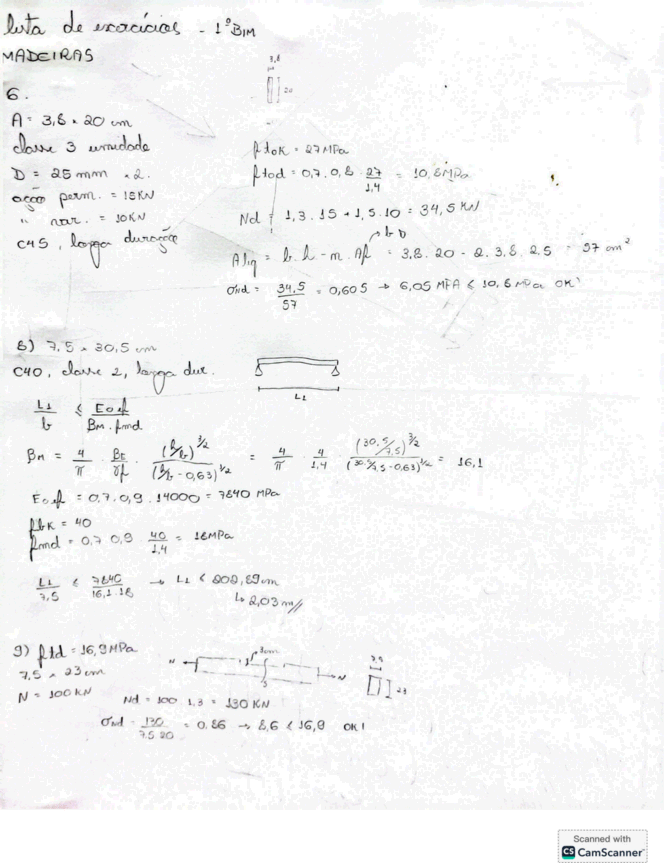 lista de exercícios - 1º BIM
MADEIRAS
6.
3,8
20
A = 3,8 x 20 cm
classe 3 umidade
D = 25 mm x 2.
ação perm. = 15KN
" var. = 10KN
C45, longa duração
ftok = 27MPa
ftod = 0,7 . 0,8 . 27/1,4 = 10,8MPa
Nd = 1,3 . 15 + 1,5 . 10 = 34,5 KN
b D
Aliq = b . h - n . Af = 3,8 . 20 - 2 . 3,8 . 2,5 = 57 cm²
σNd = 34,5/57 = 0,605 → 6,05 MPA < 10,8 MPa OK!
8) 7,5 x 30,5 cm
C40, classe 2, longa dur.
L1
L1/b ≤ Eoef/(BM . fmd)
BM = 4/π . BE/γf . (h/b)^3/2/(h/b - 0,63)^1/2 = 4/π . 4/1,4 . (30,5/7,5)^3/2/(30,5/7,5 - 0,63)^1/2 = 16,1
Eoef = 0,7 . 0,9 . 14000 = 7840 MPa
fbk = 40
fmd = 0,7 0,9 . 40/1,4 = 18MPa
L1/7,5 ≤ 7840/16,1 . 18 → L1 < 202,89cm
↳ 2,03 m//
9) ftd = 16,9MPa
7,5 x 23 cm
N = 100KN
N
3cm
N
23
Nd = 100 . 1,3 = 130 KN
σNd = 130/7,5 . 20 = 0,86 → 8,6 < 16,9 OK!
Scanned with
CS CamScanner